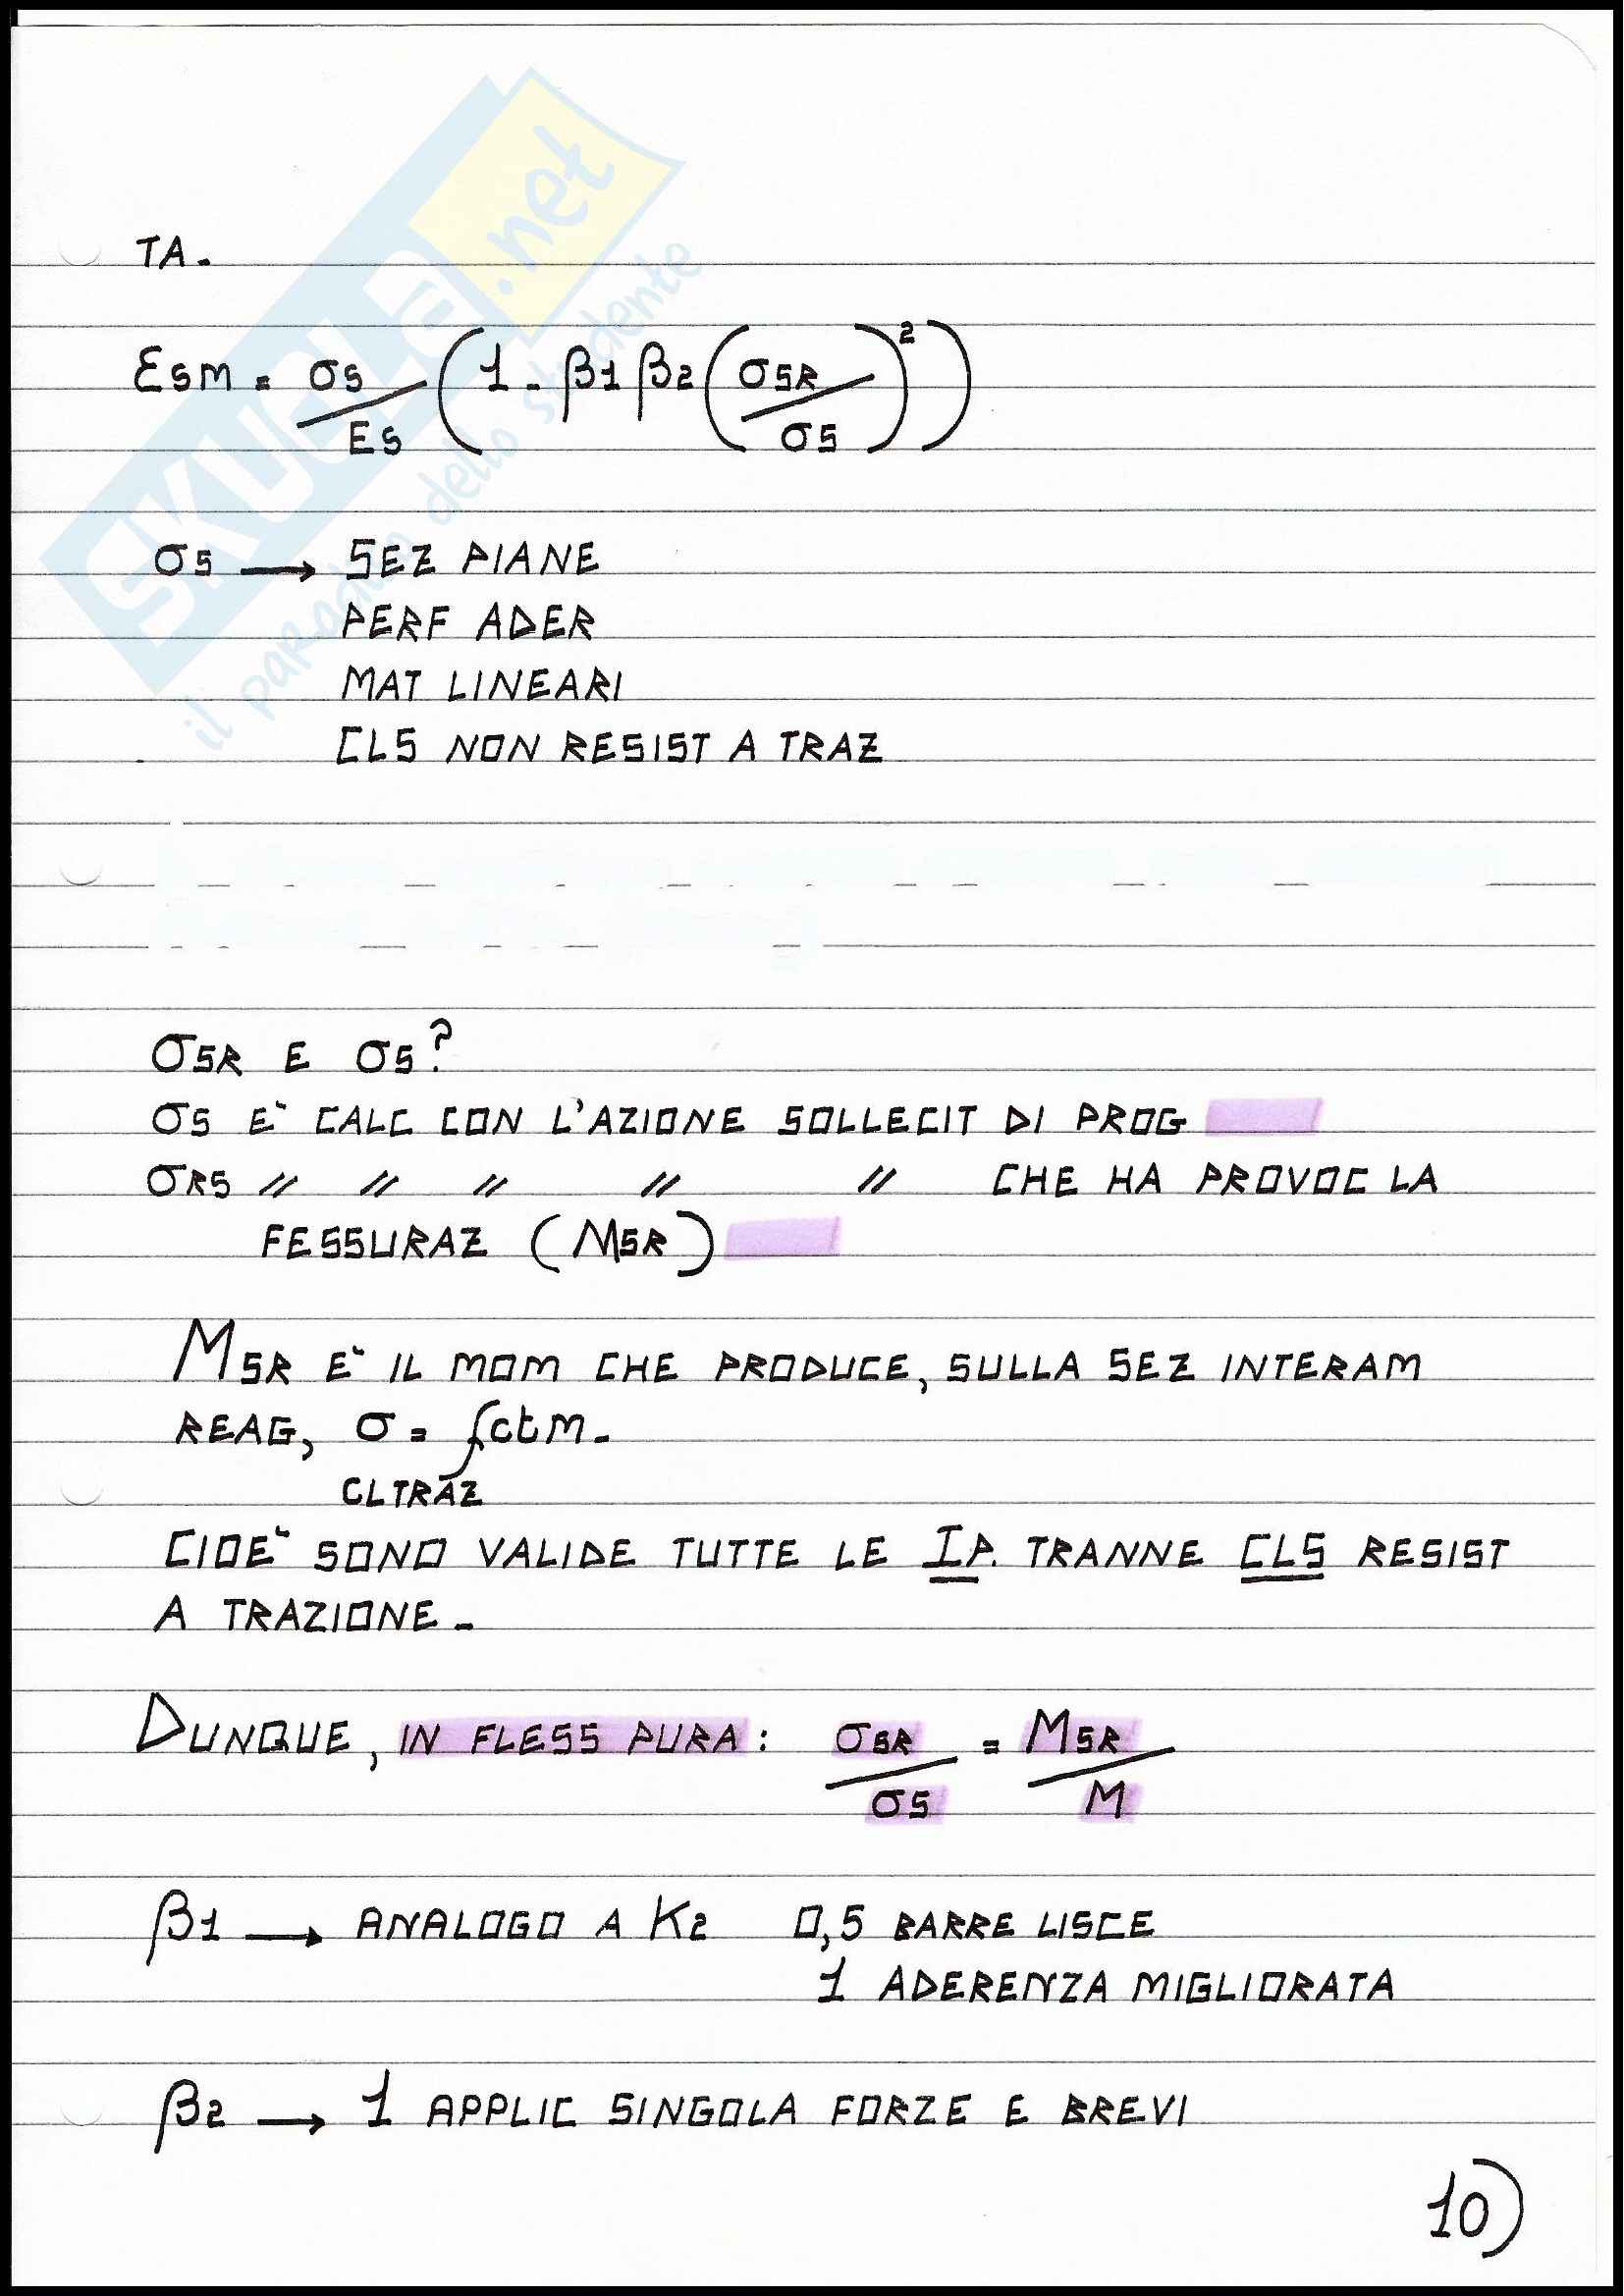 SKUOLA.net
il paradiso dello studente
TA.
εsm = σs/Es (1 - β1 β2 (σsR/σs)²)
σs → SEZ PIANE
PERF ADER
MAT LINEARI
CLS NON RESIST A TRAZ
σsR E σs?
σs E` CALC CON L'AZIONE SOLLECIT DI PROG
σRs " " " " " CHE HA PROVOC LA
FESSURAZ (MsR)
MsR E` IL MOM CHE PRODUCE, SULLA SEZ INTERAM
REAG, σ = fctm.
CLTRAZ
CIOE` SONO VALIDE TUTTE LE IP. TRANNE CLS RESIST
A TRAZIONE.
DUNQUE, IN FLESS PURA: σsR/σs = MsR/M
β1 → ANALOGO A K2 0,5 BARRE LISCE
1 ADERENZA MIGLIORATA
β2 → 1 APPLIC SINGOLA FORZE E BREVI
10)